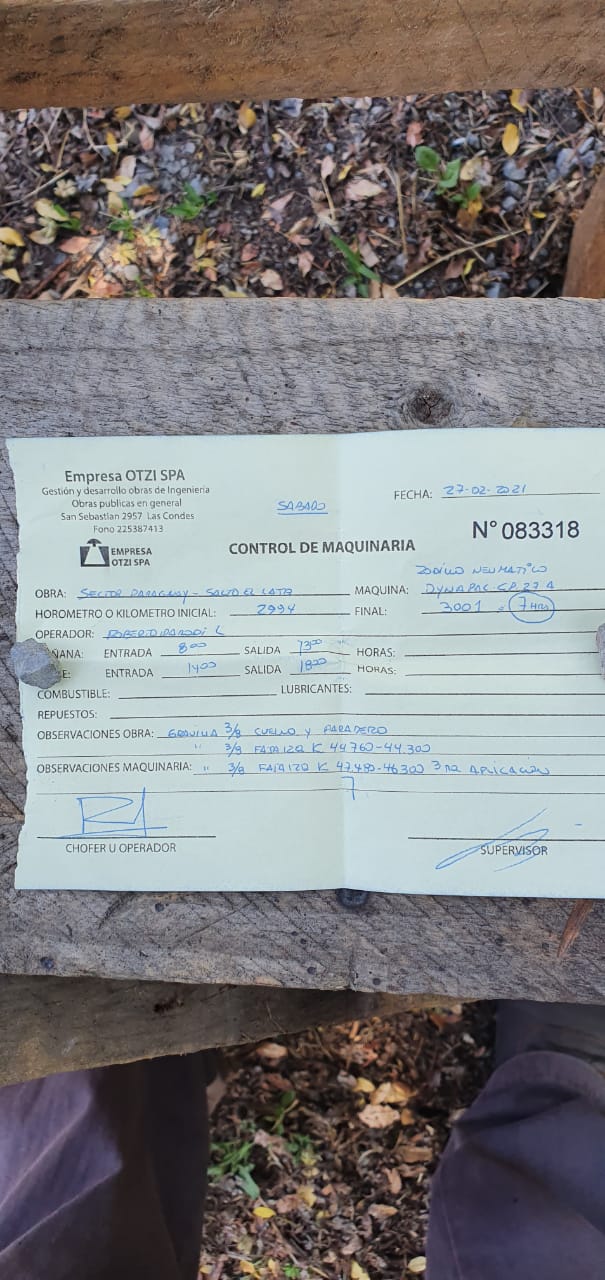 Empresa OTZI SPA
Gestión y desarrollo obras de Ingenieria
Obras publicas en general
San Sebastian 2957 Las Condes
Fono 225387413
EMPRESA
OTZI SPA
SABADO
FECHA: 27-02-2021
N° 083318
CONTROL DE MAQUINARIA
RODILLO NEUMATICO
OBRA: SECTOR PARAGUAY - SALTO EL MAQUINA: DYNAPAC CP 27 A
HOROMETRO O KILOMETRO INICIAL: 2994 FINAL: 3001 = 7 HRS
OPERADOR: ROBERTO PARODI L
ÑANA: ENTRADA 8:00 SALIDA 13:00 HORAS:
E: ENTRADA 14:00 SALIDA 18:00 HORAS:
COMBUSTIBLE: LUBRICANTES:
REPUESTOS:
OBSERVACIONES OBRA: GRAVILLA 3/8 CUELLO Y PARADERO
" 3/8 FAJA IZQ K 44.760-44.300
OBSERVACIONES MAQUINARIA: " 3/8 FAJA IZQ K 47.480-46.300 3RA APLICACION
CHOFER U OPERADOR
SUPERVISOR